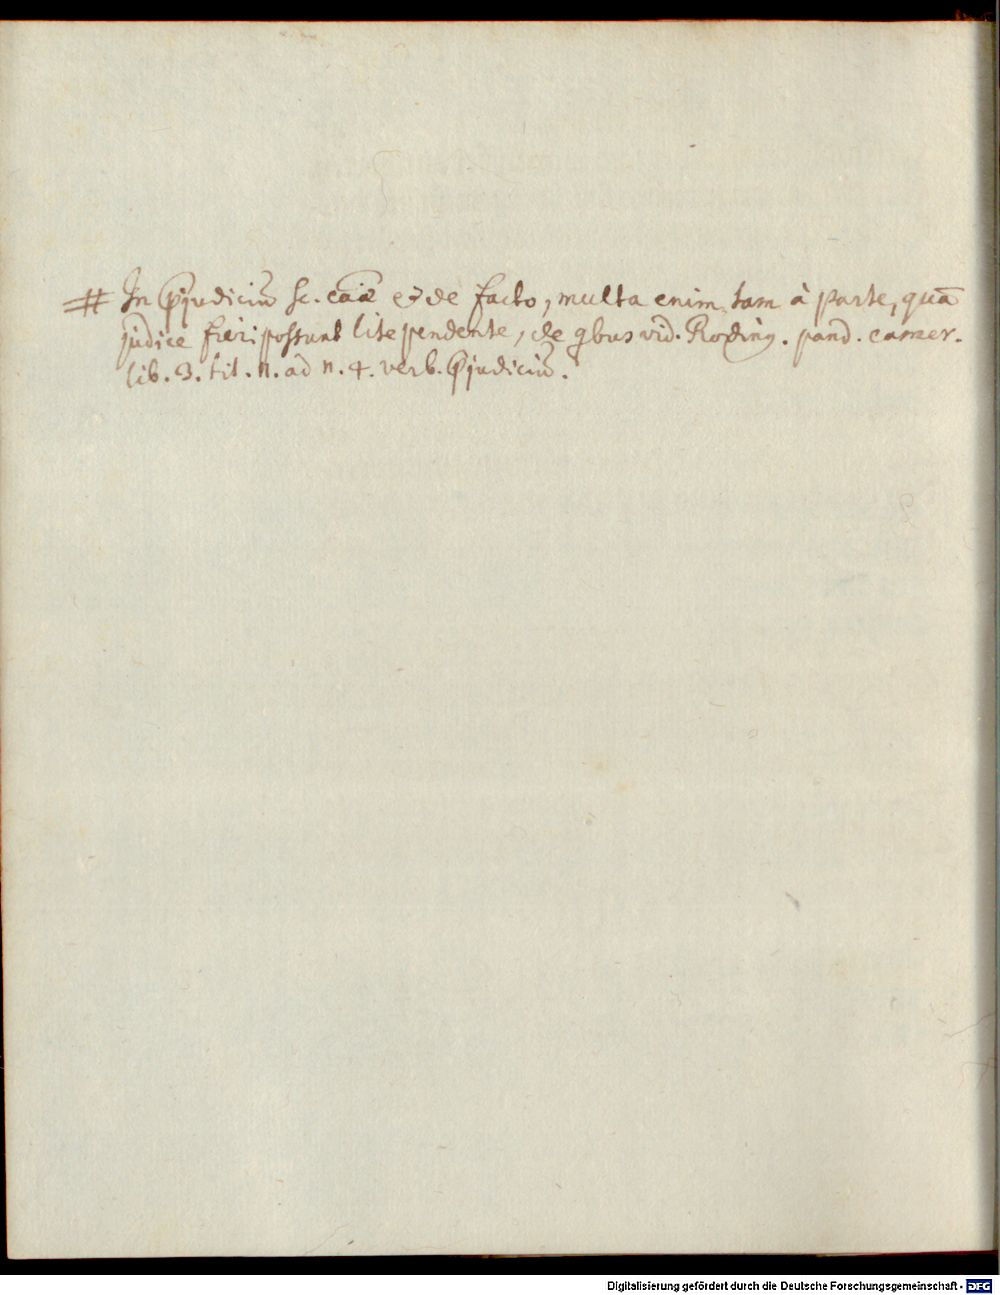 # In p̄judiciū sc. cāæ et de facto, multa enim tam à parte, quā
judice fieri possunt lite pendente, de qbus vid. Roding. pand. camer.
lib. 3. tit. 11. ad n. 4. verb. p̄judiciū.
Digitalisierung gefördert durch die Deutsche Forschungsgemeinschaft - DFG